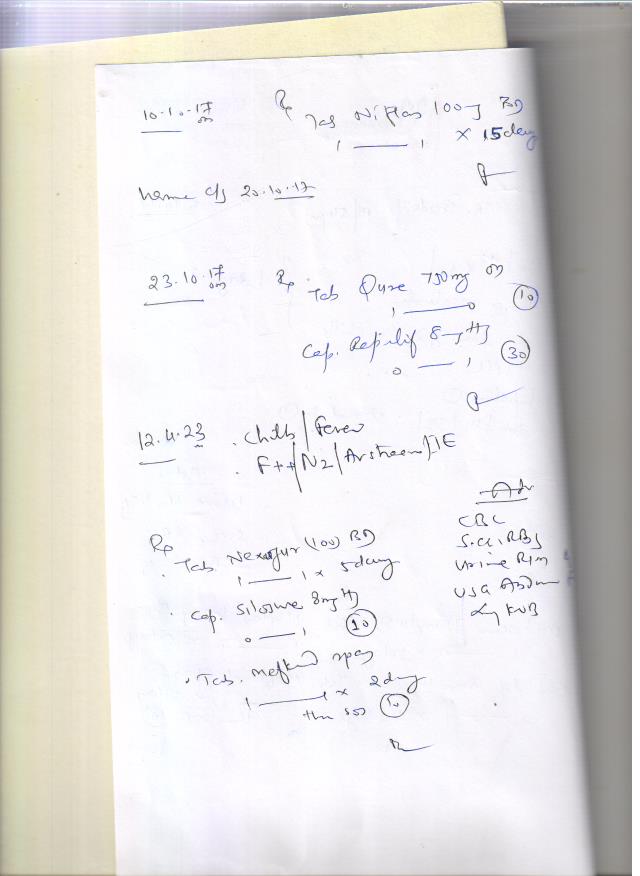 10.10.17 Rp
Tab Niftas 100mg BD
1 — 1 x 15day
name c/s 20.10.17
23.10.17 Rp Tab Qure 750mg OD
1 — 0 10
Cap. Rapilif 8mg HS
0 — 1 30
12.4.23 . Chills / Fever
. F++/N2/
Adv
CBC
S.Cr, RBS
Urine R/m
USG Abdom
KUB
Rp
. Tab. (100) BD
1 — 1 x 5day
. Cap. Silosure 8mg HS
0 — 1 10
. Tab. Meftal spas
1 — 1 x 2day
then sos 10